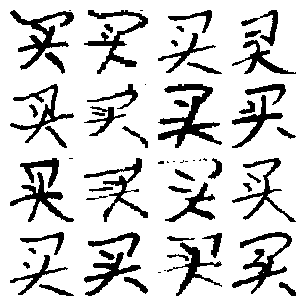 买买买买
买买买买
买买买买
买买买买